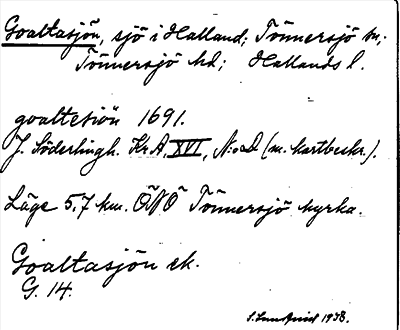 Goaltasjön, sjö i Halland; Tönnersjö sn;
Tönnersjö hd; Hallands l.
goaltesiön 1691.
J. Söderlingh. Kr.A, XVI, N:o (m. kartbeskr.).
Läge 5,7 km. ÖNÖ Tönnersjö kyrka.
Goaltasjön ek.
G. 14.
1938.